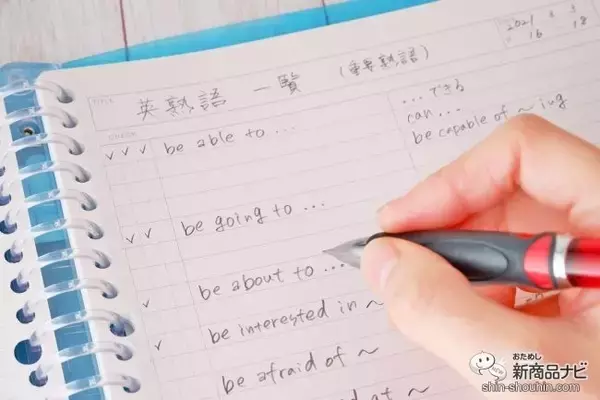 TITLE
英熟語 一覧 (重要熟語)
2021 5 5
16 18
✓ ✓ ✓ be able to ...
... できる
can ...
be capable of ~ ing
✓ ✓ be going to ...
✓ be about to ...
✓ be interested in ~
be afraid of ~
at ~
おためし
新商品ナビ
shin-shouhin.com